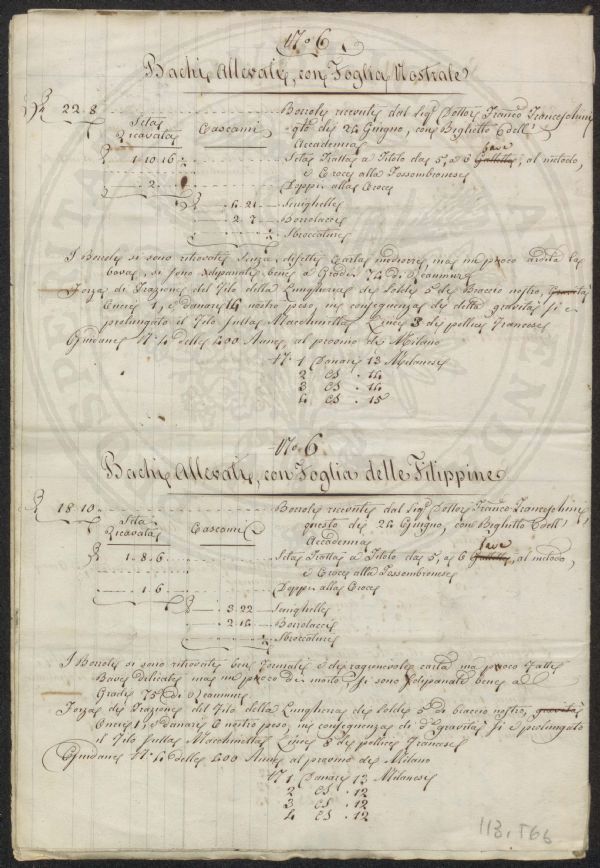 N.o 6
Bachi Allevati, con Foglia Nostrale
22 8 Bozzoli ricevuti dal Sig.r Dottor Franco Franceschini
Seta Ricavata Cascami q.to di 24 Giugno, con Biglietto dell'
Accademia
1. 10. 16 Seta Tratta a Titolo da 5, a 6 Galletta bave, al metodo,
e Croce alla Fossombronese
2 Doppi alla Croce
6. 21 Strughette
2. 7 Bozzolacci
Sbroccature
I Bozzoli si sono ritrovati senza difetti carta mediocre ma un poco ardita la
bava, si sono dipanati bene a Gradi 74 di Reaumur
Forza di Trazione del Filo della Lunghezza di Soldi 5 di Braccio nostro, Gravità
Oncie 1, e danari 14 nostro peso, in conseguenza di detta gravità si è
prolungato il Filo sulla Macchinetta Linee 3 di pollice Francese
Guidane N.o 4 delle 400 Aune, al provino di Milano
N.o 1 Danari 13 Milanesi
2 Ed . 14
3 Ed . 14
4 Ed . 15
N.o 6
Bachi Allevati, con Foglia delle Filippine
18 10 Bozzoli ricevuti dal Sig.r Dottor Franco Franceschini
Seta Ricavata Cascami questo di 24 Giugno, con Biglietto dell'
Accademia
1. 8. 6 Seta Tratta a Titolo da 5, a 6 Galletta bave, al metodo,
e Croce alla Fossombronese
1. 6 Doppi alla Croce
3. 22 Strughette
2. 16 Bozzolacci
Sbroccature
I Bozzoli si sono ritrovati ben formati e di ragionevole carta ma poco fatti
Bave delicate ma un poco di morto, si sono dipanati bene a
Gradi 75 di Reaumur
Forza di Trazione del Filo della Lunghezza di Soldi 5 di braccio nostro, gravità
Oncie 1, e Danari 6 nostro peso, in conseguenza di d.a gravità si è prolungato
il Filo sulla Macchinetta Linee 8 di pollice Francese
Guidane N.o 4 delle 400 Aune al provino di Milano
N.o 1 Danari 13 Milanesi
2 Ed . 12
3 Ed . 12
4 Ed . 12
113, T66